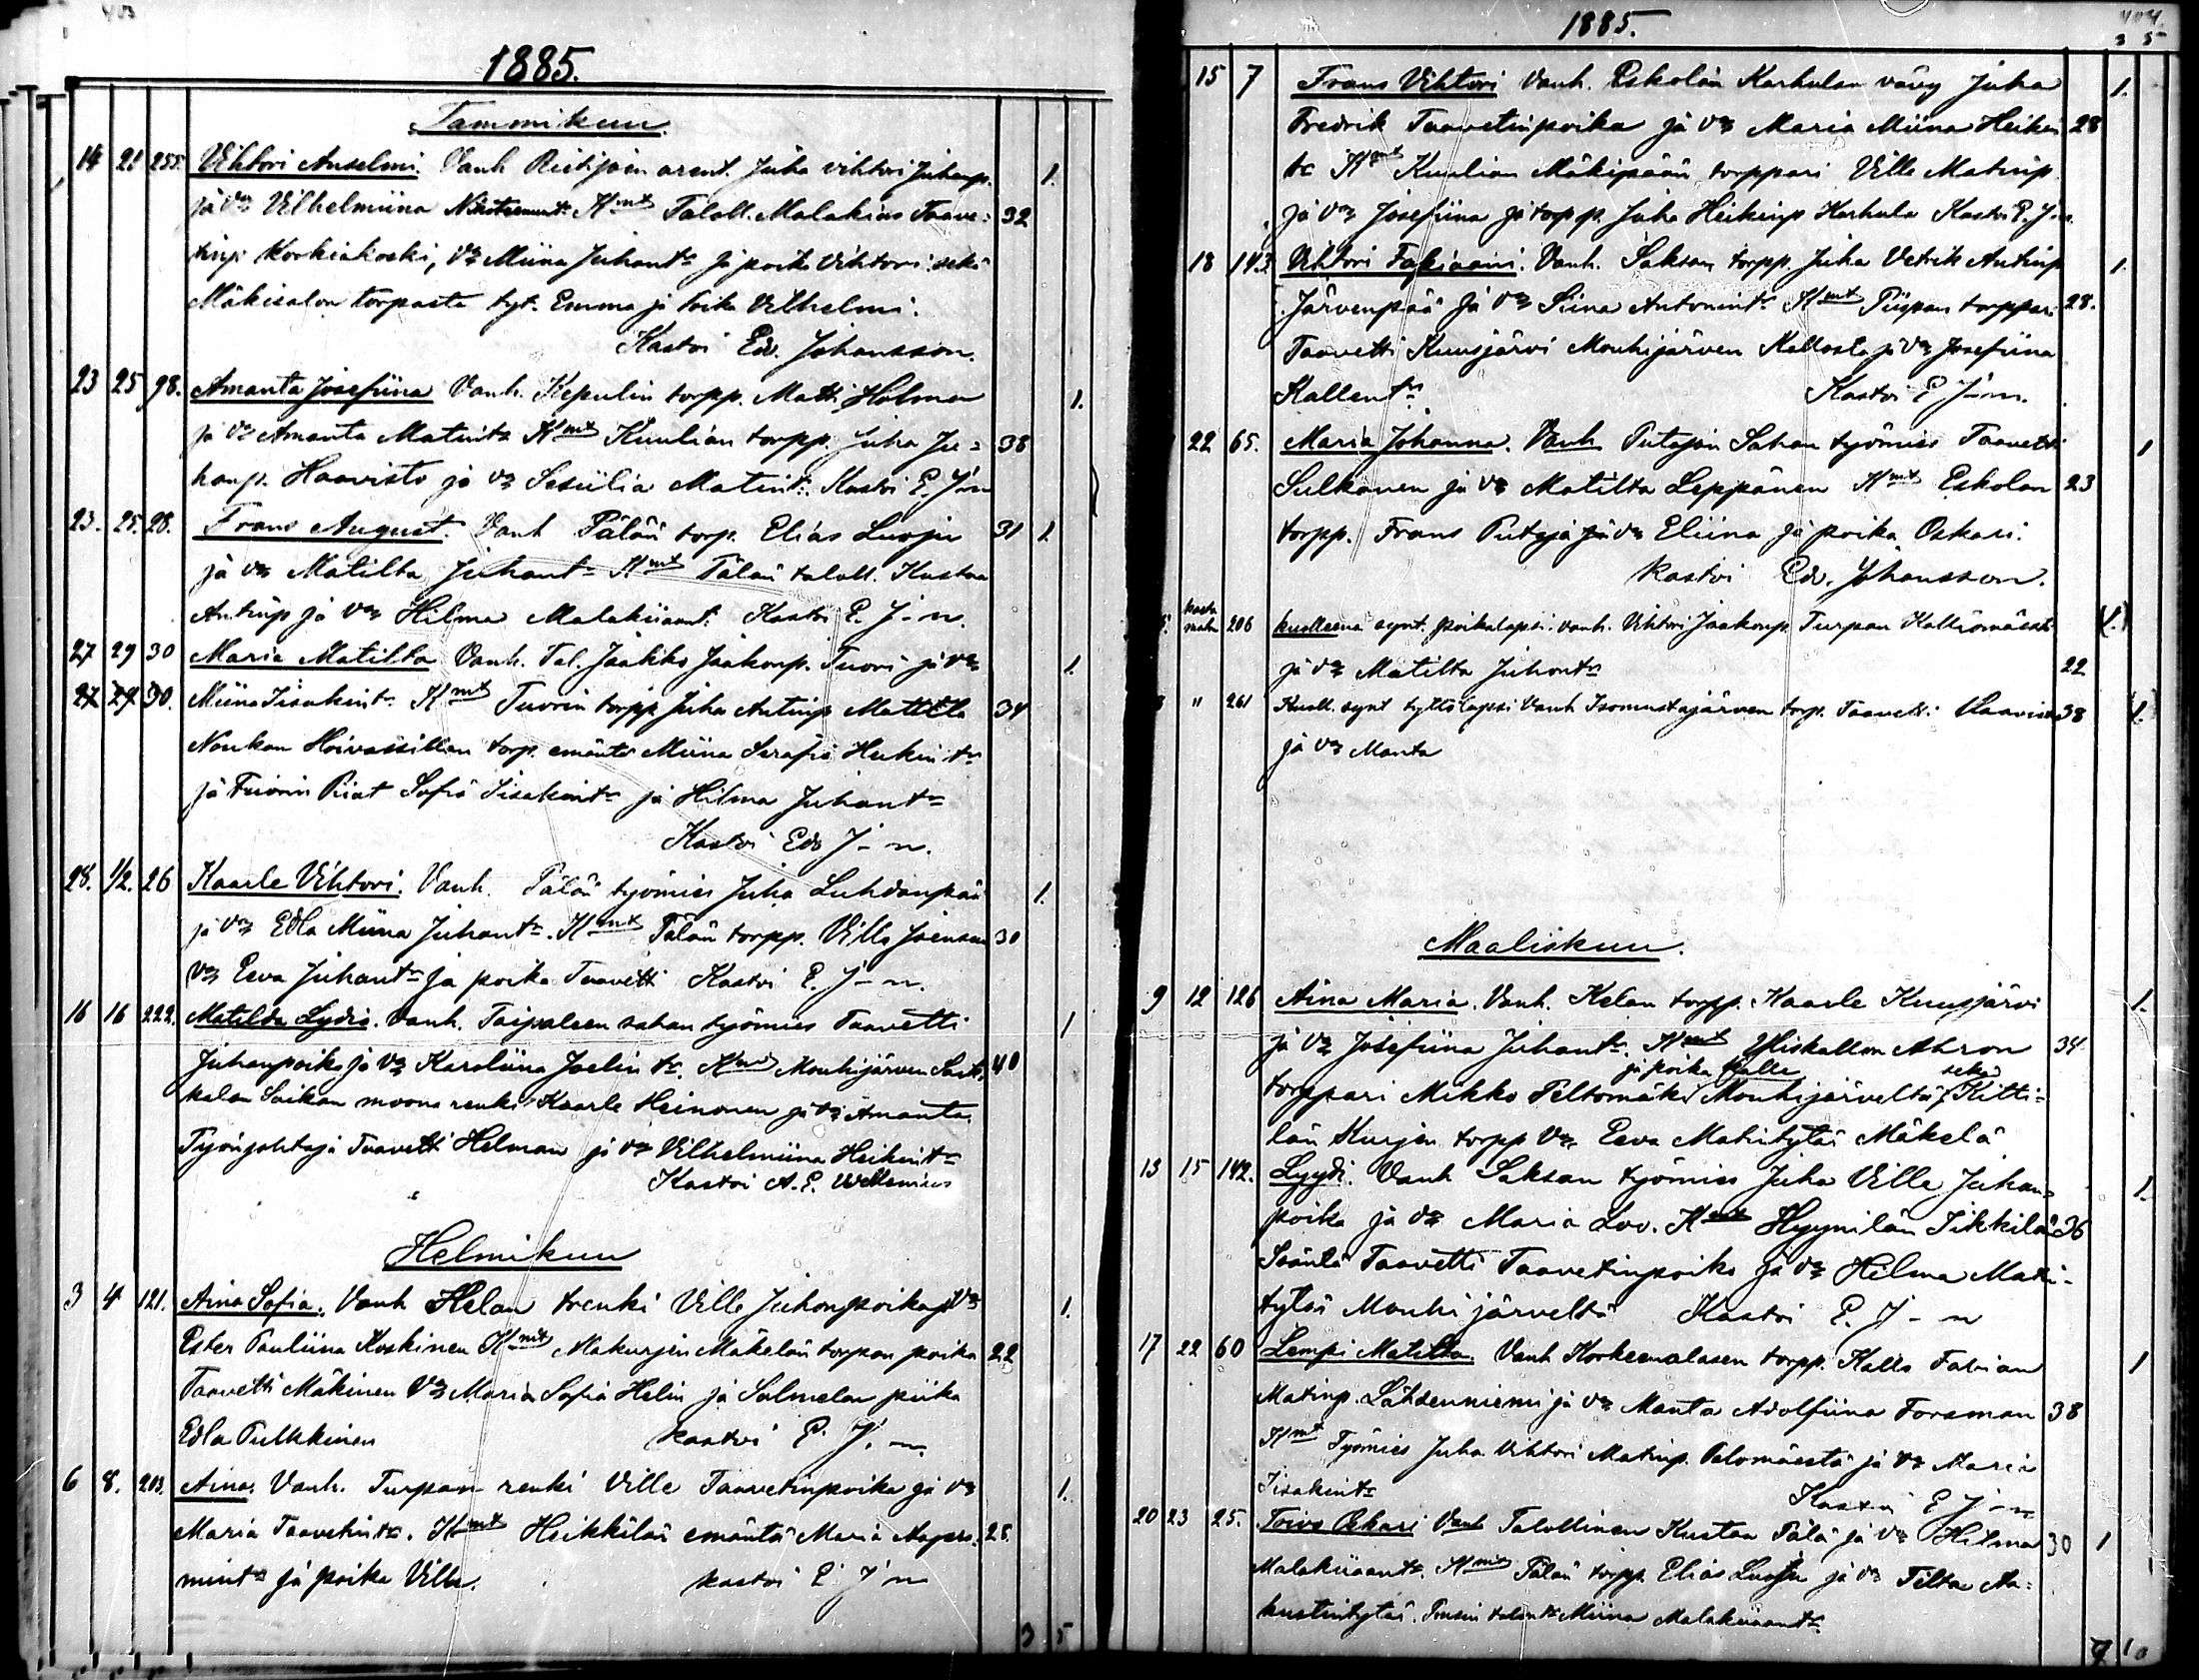 1885.
Tammikuu.
14 21 255. Vihtori Anselmi. Vanh Riitijoen arent. Juha Vihtori Juhanp. 1.
ja vo Vilhelmiina Kmt Taloll. Malakias Taave- 32
tinp. Korkiakoski, vo Miina Juhant. ja poika Vihtori sekä
Mäkisalon torpasta tyt. Emma ja poika Vilhelmi.
Kastoi Edv. Johansson.
23 25 98. Amanta Josefiina Vanh. Kepulin torpp. Matti Holman 1.
ja vo Amanta Matint. Kmt Kuulian torpp. Juha Ju- 38
hanp. Haavisto ja vo Sesiilia Matint. Kastoi E. J-n
23. 25. 28. Frans August. Vanh Pälän torp. Elias Luoju 31 1.
ja vo Matilta Juhant. Kmt Pälän taloll. Kustaa
Antinp ja vo Hilma Malakiiant. Kastoi E. J-n.
27 29 30 Maria Matilta Vanh. Tal. Jaakko Jaakonp. Tuori ja vo 1.
27 29 30. Miina Iisakint. Kmt Tuorin torpp. Juha Antinp Mattila 34
Noukan Hoivassillan torp. emäntä Miina Serafia Heikint.
ja Tuorin Piiat Sofia Iisakint. ja Hilma Juhant.
Kastoi Edv J-n.
28. 1/2. 26 Kaarle Vihtori. Vanh. Pälän työmies Juha Luhdanpää 1.
ja vo Edla Miina Juhant. Kmt Pälän torpp. Ville Joensuu 30
vo Eeva Juhant. ja poika Taavetti Kastoi E. J-n.
16 16 222. Matilda Lydia. Vanh. Taipaleen sahan työmies Taavetti 1
Juhanpoika ja vo Karoliina Joelin t. Kmt Mouhijärven 40
Saikan moona renki Kaarle Heinonen ja vo Amanta.
Työnjohtaja Taavetti Helman ja vo Vilhelmiina Heikint.
Kastoi A. E.
Helmikuu
3 4 121. Aina Sofia. Vanh Kelan trenki Ville Juhonpoika ja vo 1.
Ester Pauliina Koskinen Kmt Makurjen Mäkelän torpan poika 22
Taavetti Mäkinen vo Maria Sofia Helin ja Salmelan piika
Edla Pulkkinen kastoi E. J. n.
6 8. 203. Aina. Vanh. Turpan renki Ville Taavetinpoika ja vo 1.
Maria Taavetint. Kmt Heikkilän emäntä Maria 25.
mint. ja poika Ville. kastoi E J n
3 5
1885.
404.
3 5
15 7 Frans Vihtori Vanh. Eskolan Karhulan vävy Juha 1.
Fredrik Taavetinpoika ja vo Maria Miina Heikin 28
t. Kmt Kuulian Mäkipään torppari Ville Matinp.
ja vo Josefiina ja torpp. Juha Heikinp Karhula Kastoi E. J-n.
18 143 Vihtori Fabiaani. Vanh. Saksan torpp. Juha Vetrik Antinp 1.
Järvenpää ja vo Siina Antonint. Kmt Piispan torppari 28.
Taavetti Kuusjärvi Mouhijärven Kallosta ja vo Josefiina
Kallent. Kastoi E J-n.
22 65. Maria Johanna. Vanh. Putajan Sahan työmies Taavetti 1
Sulkanen ja vo Matilta Leppänen Kmt Eskolan 23
torpp. Frans Putaja ja vo Eliina ja poika Oskari.
Kastoi Edv. Johansson.
206 kuolleena synt. poikalapsi. vanh. Vihtori Jaakonp Turpan Kalliomäestä (1.)
ja vo Matilta Juhont. 22
" 261 Kuoll. synt tyttölapsi Vanh Isomustajärven torp. Taavetti Haavisto 38 (1.)
ja vo Manta
Maaliskuu.
9 12 126 Aina Maria. Vanh. Kelan torpp. Kaarle Kuusjärvi 1.
ja vo Josefiina Juhant. Kmt Yliskallon Ahron 34
ja poika Kalle sekä
torppari Mikko Peltomäki Mouhijärveltä, Kitti-
län Kurjen torpp vo. Eeva Matintytär Mäkelä
13 15 142. Lyydi. Vanh Saksan työmies Juha Ville Juhan- 1.
poika ja vo Maria Lov. Kmt Hyynilän Iikkilän 36
Isäntä Taavetti Taavetinpoika ja vo Hilma Matin-
tytär Mouhijärveltä Kastoi E. J-n
17 22 60 Lempi Matilta. Vanh Korkeenalasen torpp. Kalle Fabian 1
Matinp. Lähdenniemi ja vo Manta Adolfiina Forsman 38
Kmt Työmies Juha Vihtori Matinp. Palomäestä ja vo Maria
Iisakint. Kastoi E J-n
20 23 25. Toivo Oskari Vanh Talollinen Kustaa Pälä ja vo Hilma 30 1
Malakiiant. Kmt Pälän torpp. Elias Luoju ja vo Tilta Au-
kustintytär. Miina Malakiiant.
9 10